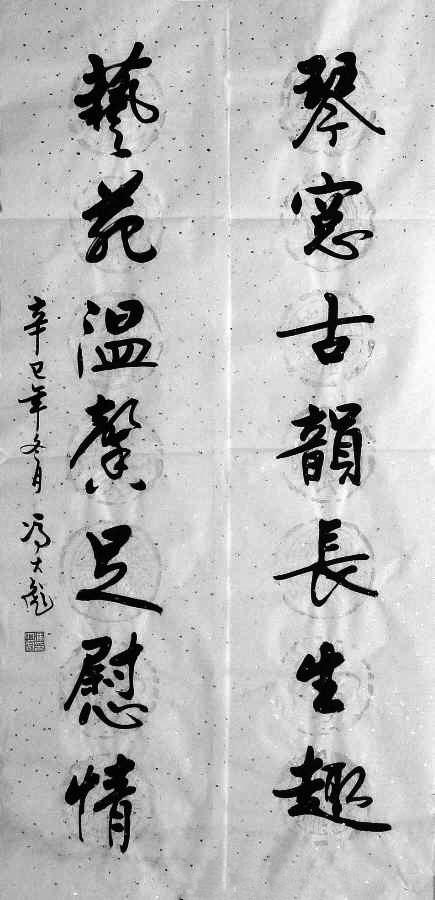 琴窓古韻長生趣
藝苑温馨足慰情
辛巳年冬月 馮大彪